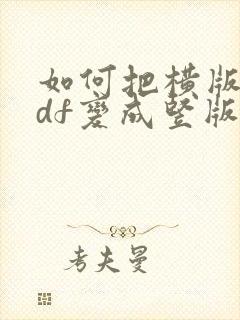 如何把横版
df变成竖版
考夫曼